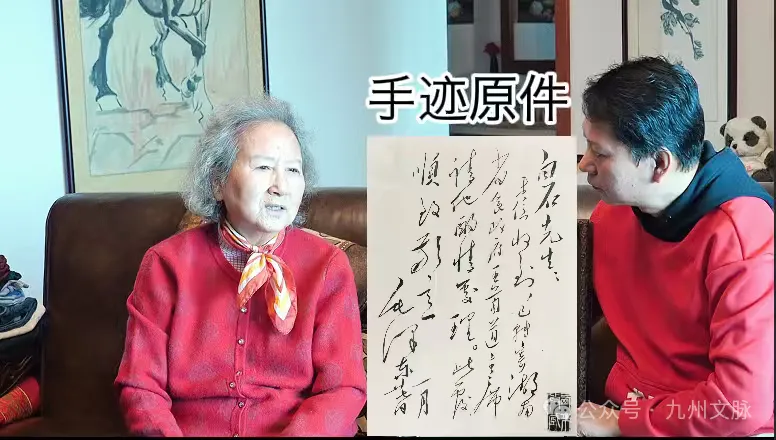 手迹原件
白石先生、
来信收到，已转寄湖南
省人民政府王首道主席
请他酌情处理。此复
顺致敬意
毛泽东
月
公众号 · 九州文脉